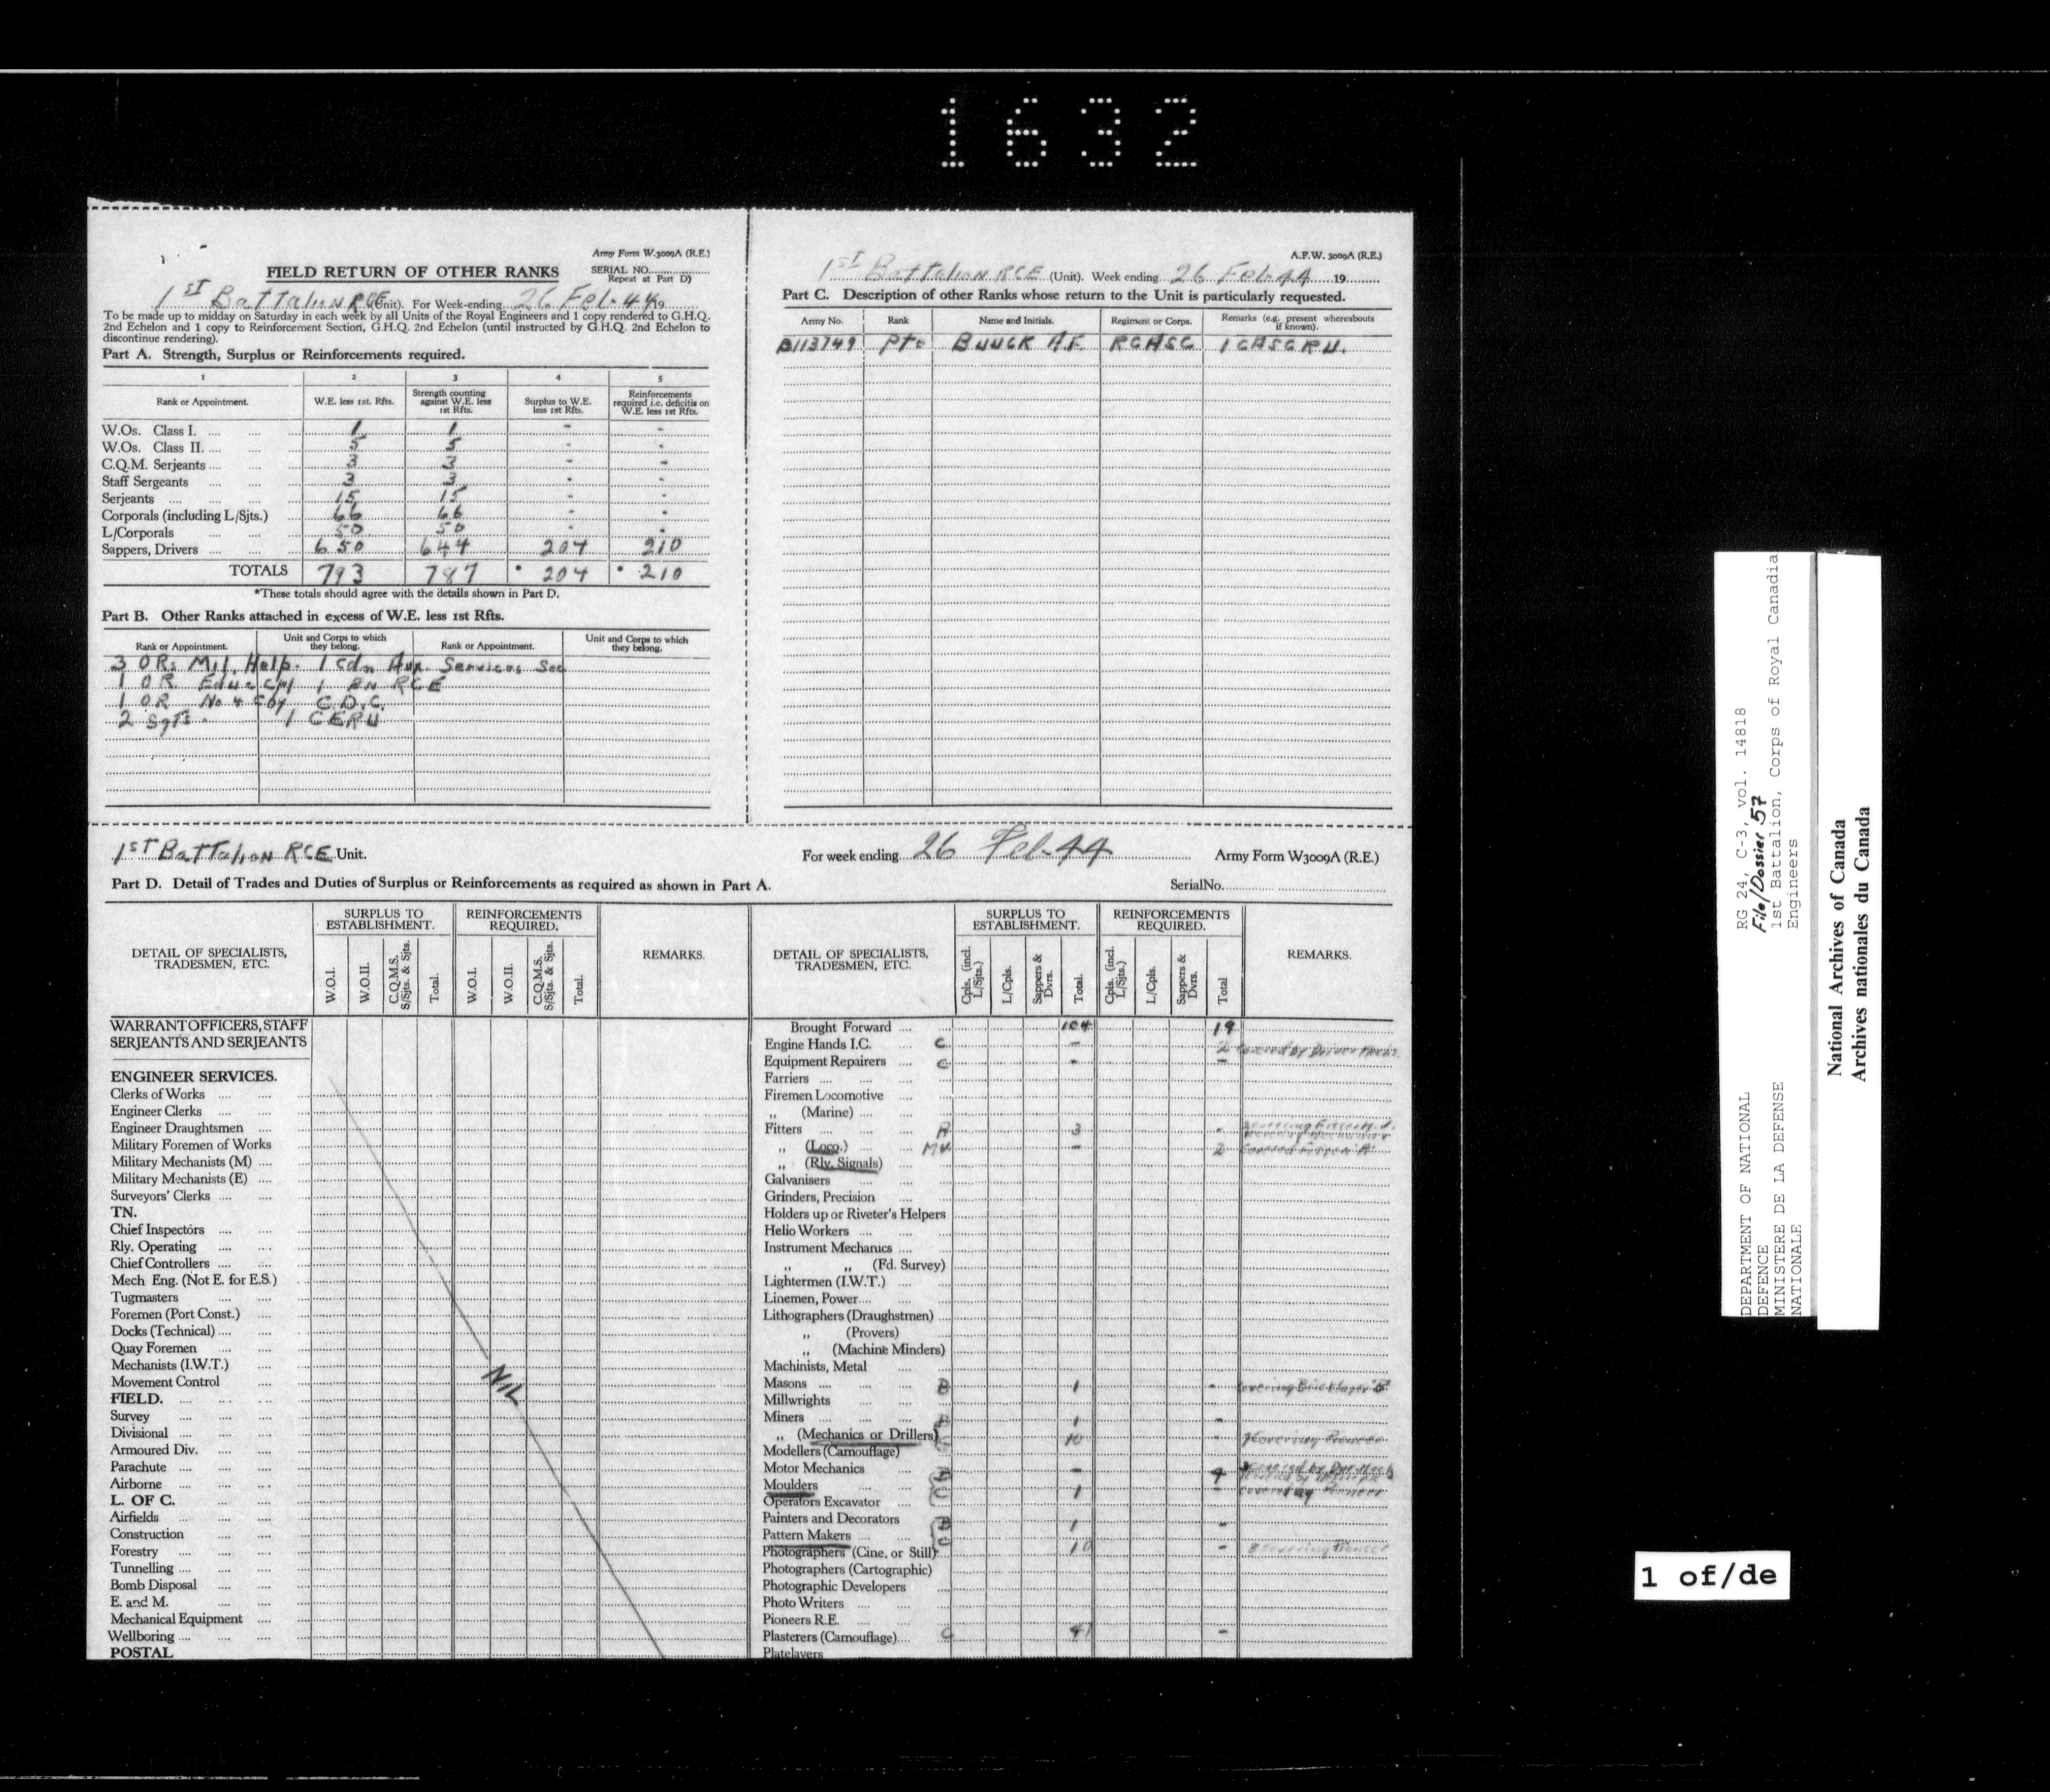 1632
Army Form W.3009A (R.E.)
FIELD RETURN OF OTHER RANKS
SERIAL NO.
Repeat at Part D)
1ST Battalion RCE (Unit). For Week-ending 26 Feb-44 19
To be made up to midday on Saturday in each week by all Units of the Royal Engineers and 1 copy rendered to G.H.Q.
2nd Echelon and 1 copy to Reinforcement Section, G.H.Q. 2nd Echelon (until instructed by G.H.Q. 2nd Echelon to
discontinue rendering).
Part A. Strength, Surplus or Reinforcements required.
1 2 3 4 5
Rank or Appointment. W.E. less 1st. Rfts. Strength counting against W.E. less 1st Rfts. Surplus to W.E. less 1st Rfts. Reinforcements required i.e. deficits on W.E. less 1st Rfts.
W.Os. Class I. 1 1 - -
W.Os. Class II. 5 5 - -
C.Q.M. Serjeants 3 3 - -
Staff Sergeants 3 3 - -
Serjeants 15 15 - -
Corporals (including L/Sjts.) 66 66 - -
L/Corporals 50 50 - -
Sappers, Drivers 650 644 204 210
TOTALS 793 787 * 204 * 210
*These totals should agree with the details shown in Part D.
Part B. Other Ranks attached in excess of W.E. less 1st Rfts.
Rank or Appointment. Unit and Corps to which they belong. Rank or Appointment. Unit and Corps to which they belong.
3 ORs Mil. Help. 1 Cdn Aux. Services Sec
1 OR Educ Cpl 1 BN RCE
1 OR No 4 Coy C.D.C.
2 Sgts. 1 CERU
A.F.W. 3009A (R.E.)
1ST Battalion RCE (Unit). Week ending 26 Feb-44 19
Part C. Description of other Ranks whose return to the Unit is particularly requested.
Army No. Rank Name and Initials. Regiment or Corps. Remarks (e.g. present whereabouts if known).
B113749 Pte BUUCK A.F. RCASC 1 CASCRU.
1ST Battalion RCE Unit. For week ending 26 Feb-44 Army Form W3009A (R.E.)
Part D. Detail of Trades and Duties of Surplus or Reinforcements as required as shown in Part A. Serial No.
DETAIL OF SPECIALISTS, TRADESMEN, ETC.
SURPLUS TO ESTABLISHMENT.
W.O.I. W.O.II. C.Q.M.S. S/Sjts. & Sjts. Total.
REINFORCEMENTS REQUIRED.
W.O.I. W.O.II. C.Q.M.S. S/Sjts. & Sjts. Total.
REMARKS.
WARRANT OFFICERS, STAFF
SERJEANTS AND SERJEANTS
ENGINEER SERVICES.
Clerks of Works
Engineer Clerks
Engineer Draughtsmen
Military Foremen of Works
Military Mechanists (M)
Military Mechanists (E)
Surveyors' Clerks
TN.
Chief Inspectors
Rly. Operating
Chief Controllers
Mech Eng. (Not E. for E.S.)
Tugmasters
Foremen (Port Const.)
Docks (Technical)
Quay Foremen
Mechanists (I.W.T.)
Movement Control
NIL
FIELD.
Survey
Divisional
Armoured Div.
Parachute
Airborne
L. OF C.
Airfields
Construction
Forestry
Tunnelling
Bomb Disposal
E. and M.
Mechanical Equipment
Wellboring
POSTAL
DETAIL OF SPECIALISTS, TRADESMEN, ETC.
SURPLUS TO ESTABLISHMENT.
Cpls. (incl. L/Sjts.) L/Cpls. Sappers & Dvrs. Total.
REINFORCEMENTS REQUIRED.
Cpls. (incl. L/Sjts.) L/Cpls. Sappers & Dvrs. Total
REMARKS.
Brought Forward 104 19
Engine Hands I.C. C - 2 Covered by Driver Mechs.
Equipment Repairers C - -
Farriers
Firemen Locomotive
,, (Marine)
Fitters A 3 -
,, (Loco.) MV - 2
,, (Rly. Signals)
Galvanisers
Grinders, Precision
Holders up or Riveter's Helpers
Helio Workers
Instrument Mechanics
,, ,, (Fd. Survey)
Lightermen (I.W.T.)
Linemen, Power
Lithographers (Draughstmen)
,, (Provers)
,, (Machine Minders)
Machinists, Metal
Masons B 1 - Covering Bricklayer B
Millwrights
Miners B 1 -
,, (Mechanics or Drillers) C 10 - Covering Pioneer
Modellers (Camouflage)
Motor Mechanics - 9
Moulders C 1 -
Operators Excavator
Painters and Decorators B 1 -
Pattern Makers
Photographers (Cine. or Still) C 10 - Covering Pioneer
Photographers (Cartographic)
Photographic Developers
Photo Writers
Pioneers R.E.
Plasterers (Camouflage) C 41 -
Platelayers
RG 24, C-3, vol. 14818
File/Dossier 57
1st Battalion, Corps of Royal Canadia
Engineers
DEPARTMENT OF NATIONAL
DEFENCE
MINISTERE DE LA DEFENSE
NATIONALE
National Archives of Canada
Archives nationales du Canada
1 of/de